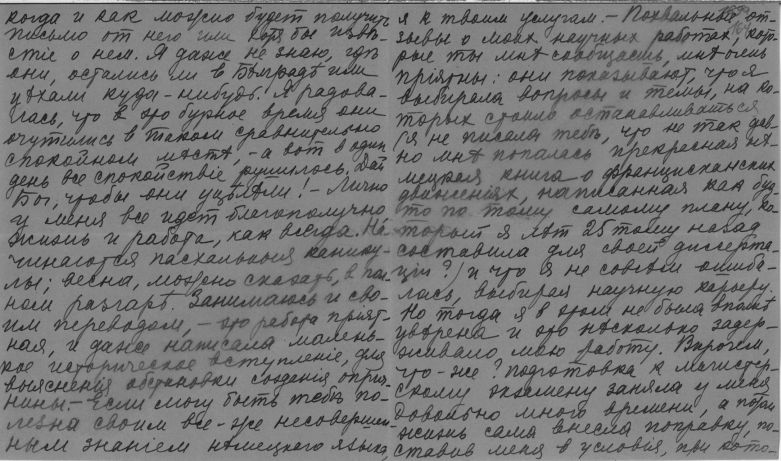 когда и как можно будет получить
письмо от него или хотя бы извѣ-
стіе о нем. Я даже не знаю, гдѣ
они, остались ли в Бѣлградѣ или
уѣхали куда-нибудь! Я радова-
лась, что в это бурное время они
очутились в таком сравнительно
спокойном мѣстѣ, - а вот в один
день все спокойствіе рушилось. Дай
Бог, чтобы они уцѣлѣли! - Лично
у меня все идет благополучно
жизнь и работа, как всегда. На-
чинаются пасхальныя канику-
лы; весна, можно сказать, в пол-
ном разгарѣ. Занимаюсь и сво-
им переводом, - это работа прият-
ная, и даже написала малень-
кое историческое вступленіе, для
выяснения обстановки созданія оприч-
нины. - Если могу быть тебѣ по-
лезна своим все-же несовершен-
ным знаніем нѣмецкого языка,
я к твоим услугам. - Похвальные от-
зывы о моих научных работах, кото-
рые ты мнѣ сообщаешь, мнѣ очень
приятны: они показывают, что я
выбирала вопросы и темы, на ко-
торых стоило останавливаться
(я не писала тебѣ, что не так дав-
но мнѣ попалась прекрасная нѣ-
мецкая книга о францисканских
движениях, написанная как буд-
то по тому самому плану, ко-
торый я лѣт 25 тому назад
составила для своей диссерта-
ціи?) и что я не совсѣм ошиба-
лась, выбирая научную карьеру.
Но тогда я в этом не была вполнѣ
увѣрена и это нѣсколько задер-
живало мою работу. Впрочем,
что-же? подготовка к магистер-
скому экзамену заняла у меня
довольно много времени, а потом
жизнь сама внесла поправку, по-
ставив меня в условія, при кото-